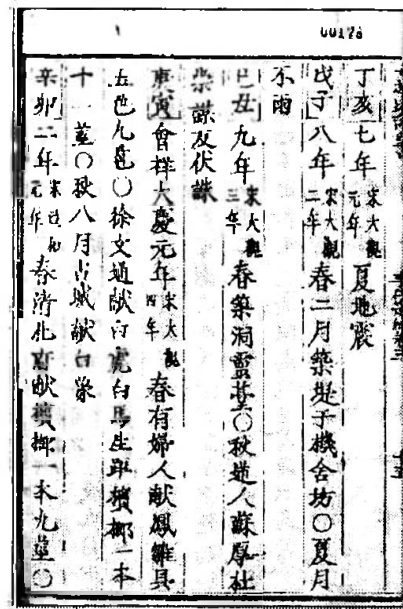 00178
丁亥七年宋大觀元年夏地震
戊子八年宋大觀二年春二月築堤于機舍坊〇夏月
不雨
己丑九年宋大觀三年春築洞靈臺〇秋道人蘇厚杜
崇謀反伏誅
庚寅會祥大慶元年宋大觀四年春有婦人獻鳳雛具
五色九苞〇徐文通獻白虎白馬生距檳榔一本
十一莖〇秋八月占城獻白象
辛卯二年宋政和元年春清化府獻檳榔一本九莖〇